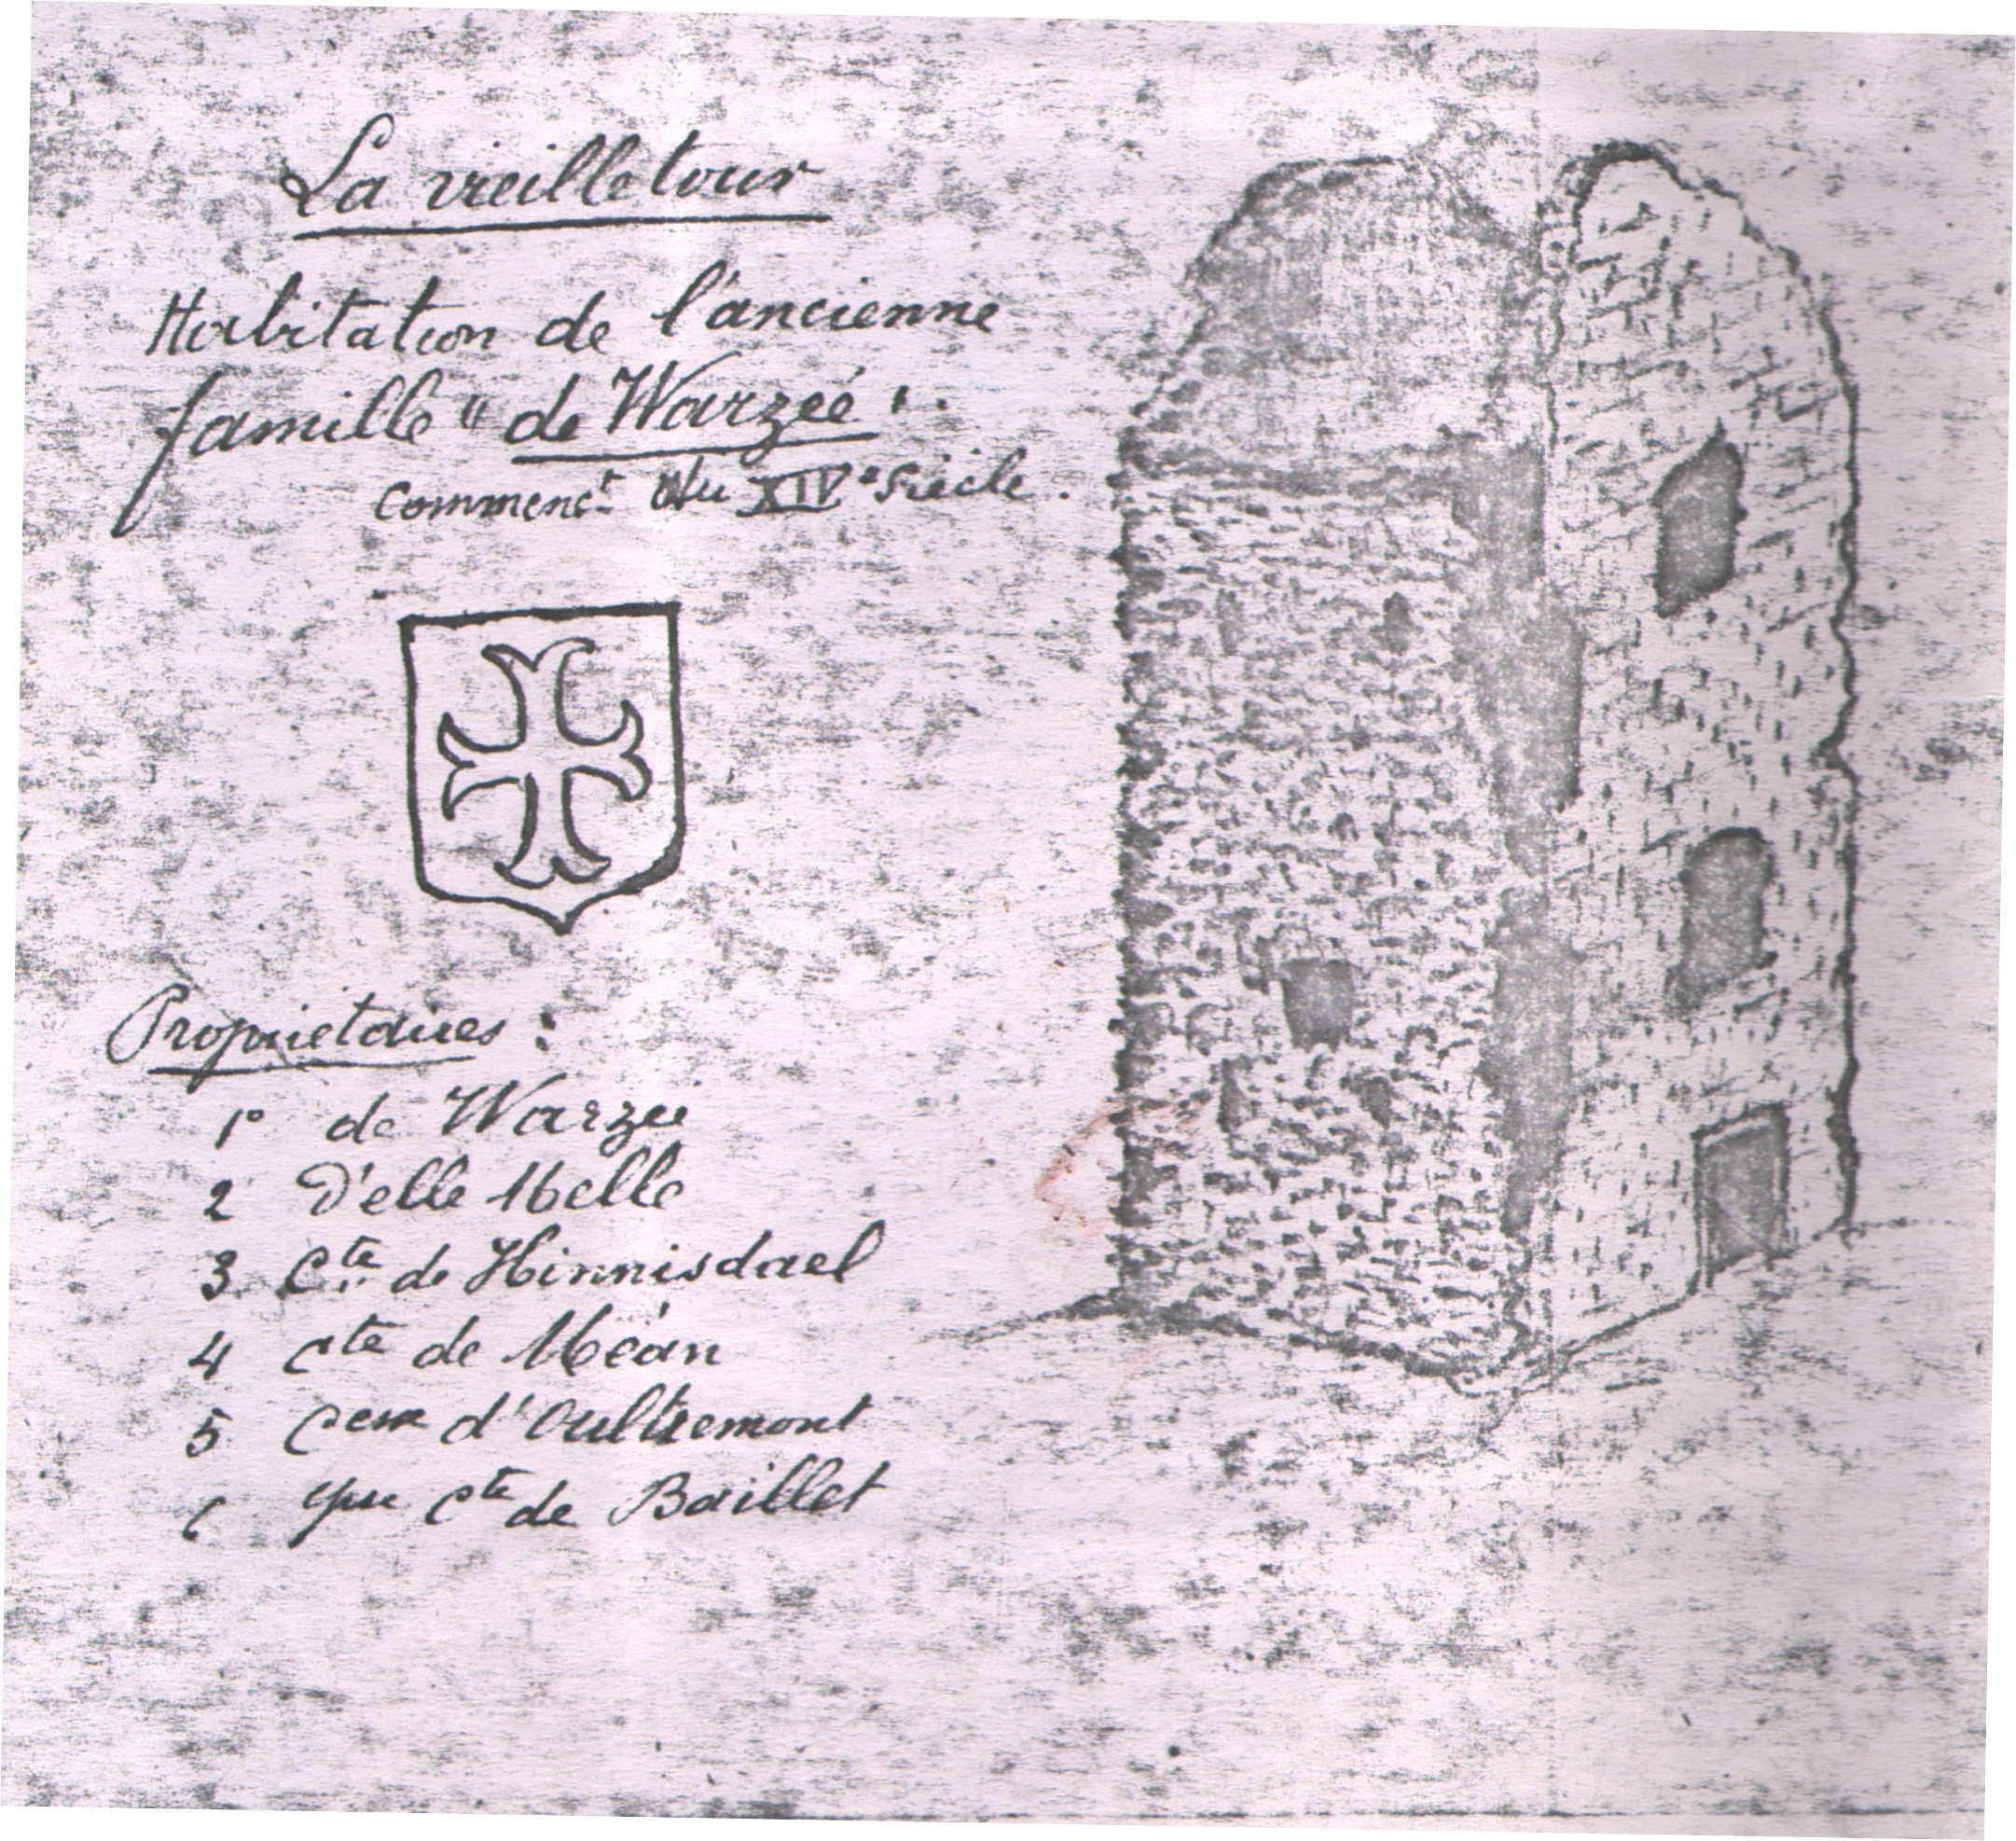 La vieille tour
Habitation de l'ancienne
famille "de Warzée".
Commenct du XIVe siècle.
Propriétaires :
1° de Warzée
2 D'elle Melle
3 Cte de Hinnisdael
4 Cte de Méan
5 Cesse d'Oultremont
6 Cte de Baillet